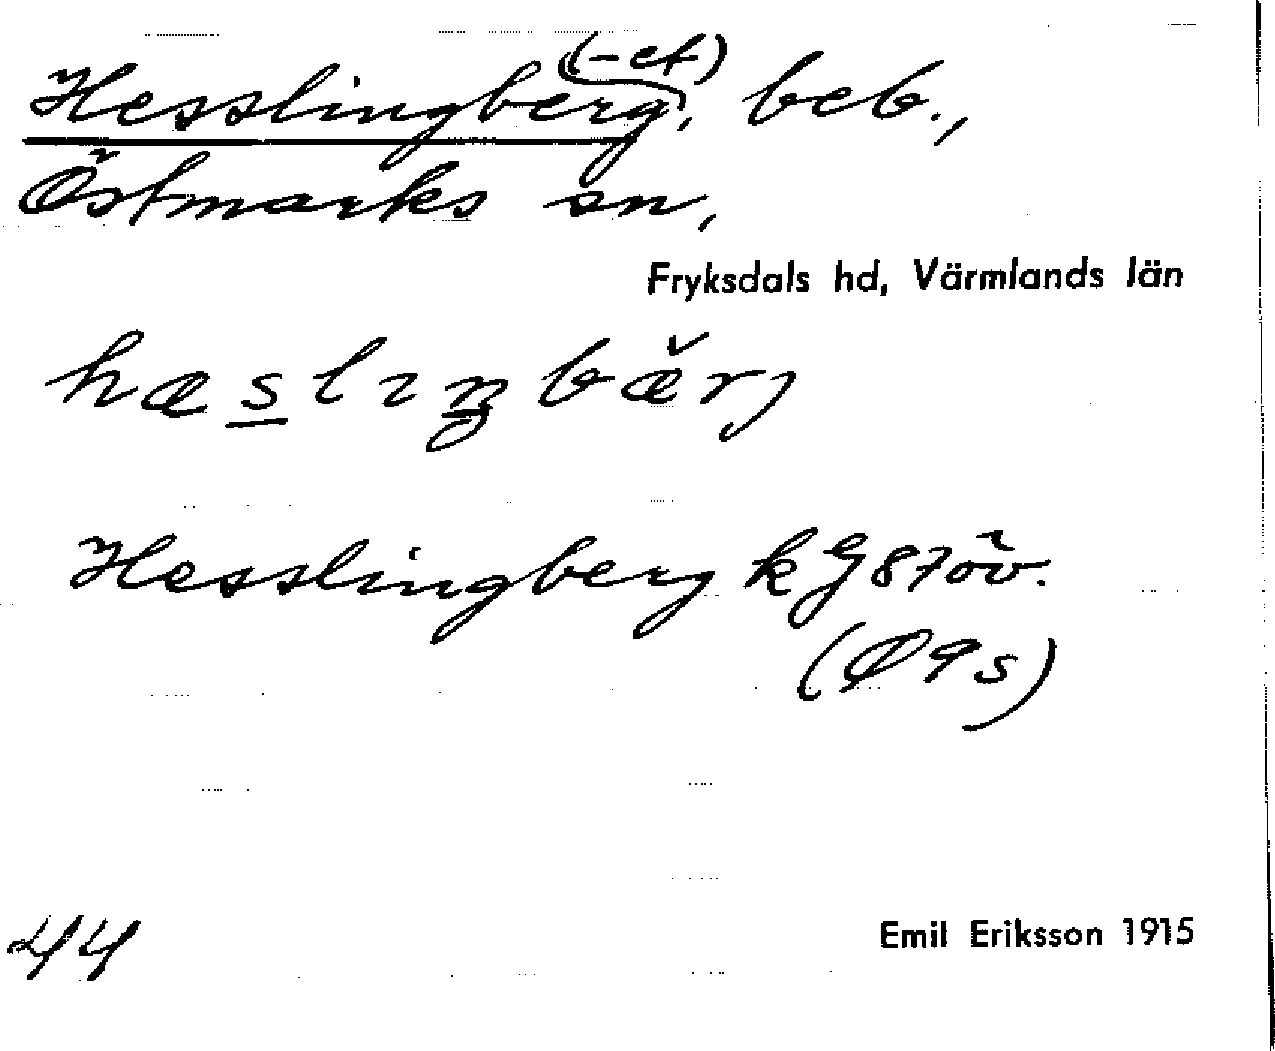 Hesslingberg(-et), beb.,
Östmarks sn,
Fryksdals hd, Värmlands län
hæslıŋbæ̌rj
Hesslingberg k G 87 öv.
(Ö 9 s)
44
Emil Eriksson 1915